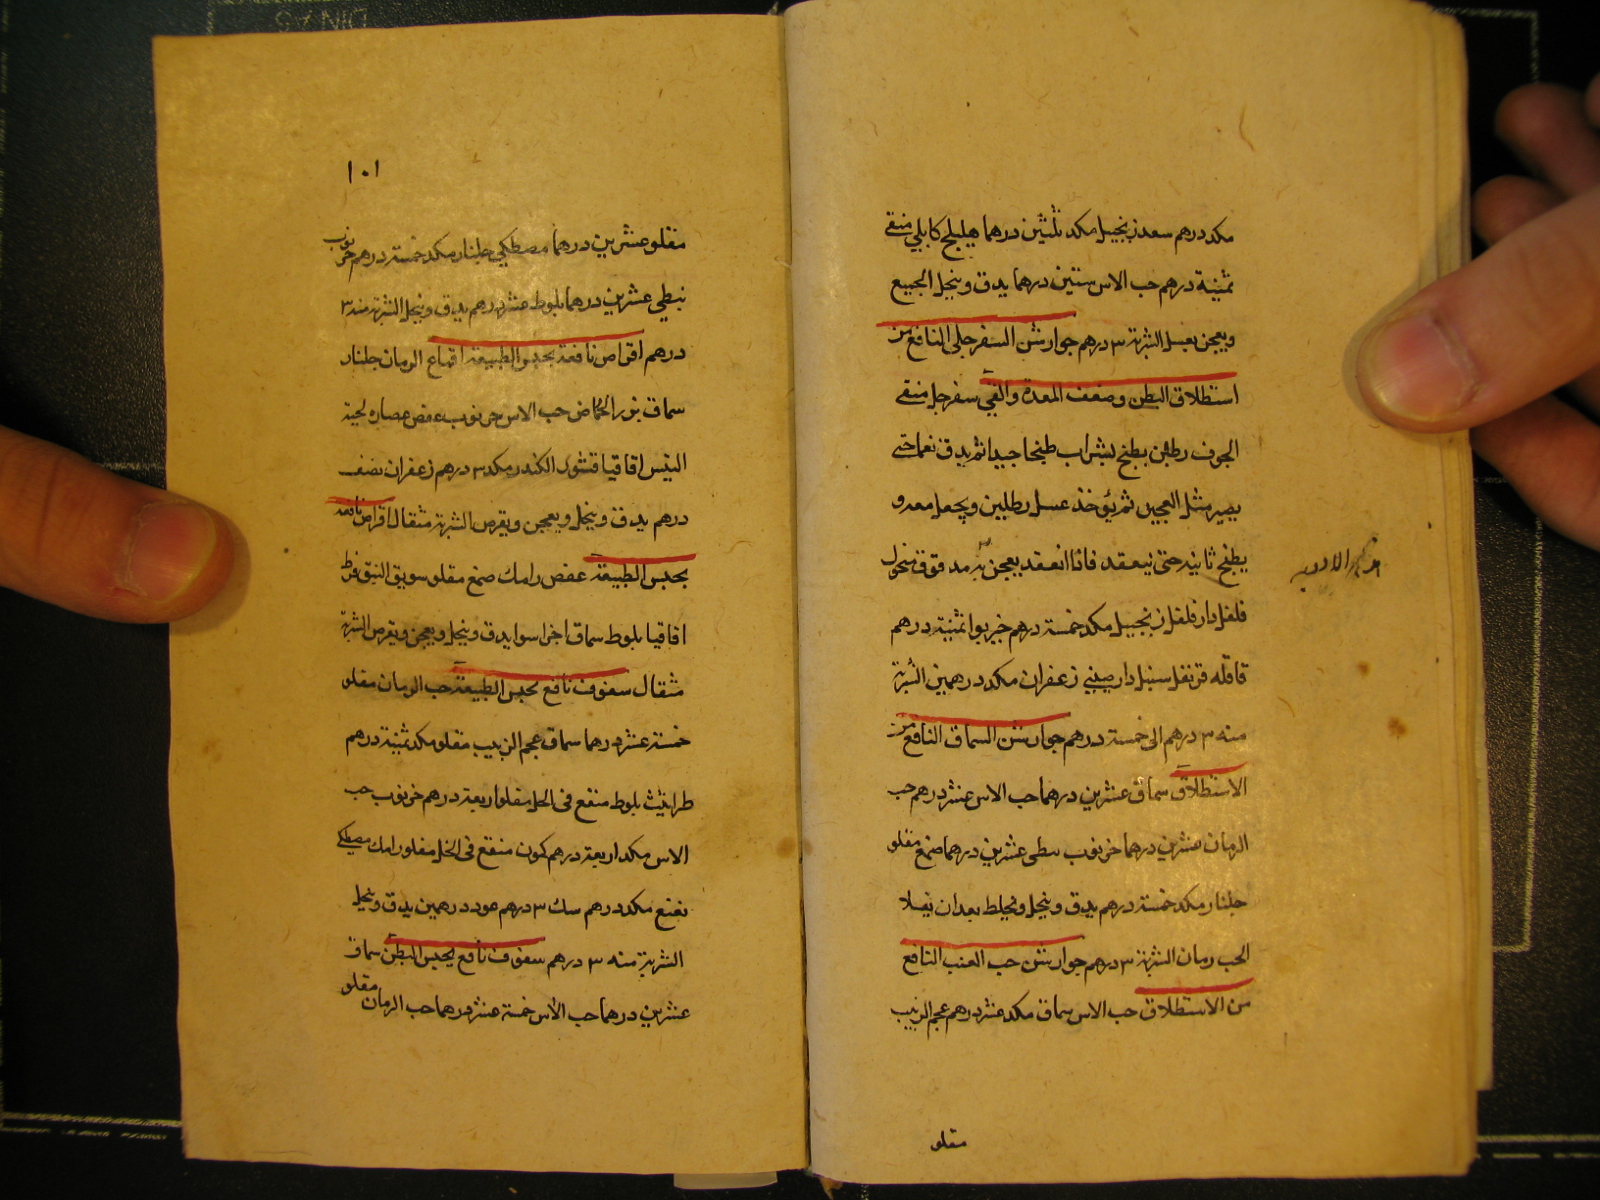 مكد درهم سعد زنجبيل مكد ثلثين درهما هليلج كابلي منقى
ثمنية درهم حب الاس ستين درهما يدق وينخل الجميع
ويعجن بعسل الشربة ٣ درهم جوارشن السفرجلى النافع من
استطلاق البطن وضعف المعدة والقي سفرجل منقى
الجوف رطلين يطبخ بشراب طبخا جيدا ثم يدق نعما حتى
يصير مثل العجين ثم يؤخذ عسل رطلين ويجعل معه و
يطبخ ثانية حتى ينعقد فاذا انعقد يعجن به مدقوق منخول
فلفل دار فلفل زنجبيل مكد خمسة درهم خيربوا ثمنية درهم
قاقله قرنفل سنبل دارصيني زعفران مكد درهمين الشربة
منه ٣ درهم الى خمسة درهم جوارشن السماق النافع من
الاستطلاق سماق عشرين درهما حب الاس عشر درهم حب
الرمان عشرين درهما خرنوب نبطى عشرين درهما صمغ مقلو
جلنار مكد خمسة درهم يدق وينخل ويخلط بعد ان يقلا
الحب رمان الشربة ٣ درهم جوارشن حب العنب النافع
من الاستطلاق حب الاس سماق مكد عشر درهم عجم الزبيب
مقلو
الادويه
١٠١
مقلو عشرين درهما مصطكي جلنار مكد خمسة درهم خرنوب
نبطي عشرين درهما بلوط عشر درهم يدق وينخل الشربة منه ٣
درهم اقراص نافعة بحبس الطبيعة اقماع الرمان جلنار
سماق بزر الحماض حب الاس خرنوب عفص عصاره لحية
التيس اقاقيا قشور الكندر مكد ٣ درهم زعفران نصف
درهم يدق وينخل ويعجن ويقرص الشربة مثقال اقراص نافعة
بحبس الطبيعة عفص رامك صمغ مقلو سويق النبق قرظ
اقاقيا بلوط سماق اجزا سوا يدق وينخل ويعجن ويقرص الشربة
مثقال سفوف نافع لحبس الطبيعة حب الرمان مقلو
خمسة عشر درهما سماق عجم الزبيب مقلو مكد ثمنية درهم
طراثيث بلوط منقع فى الخل مقلو اربعة درهم خرنوب حب
الاس مكد اربعة درهم كمون منقع فى الخل مقلو رامك مصطكى
نعنع مكد درهم سك ٣ درهم عود درهمين يدق وينخل
الشربة منه ٣ درهم سفوف نافع يحبس البطن سماق
عشرين درهما حب الاس خمسة عشر درهما حب الرمان مقلو